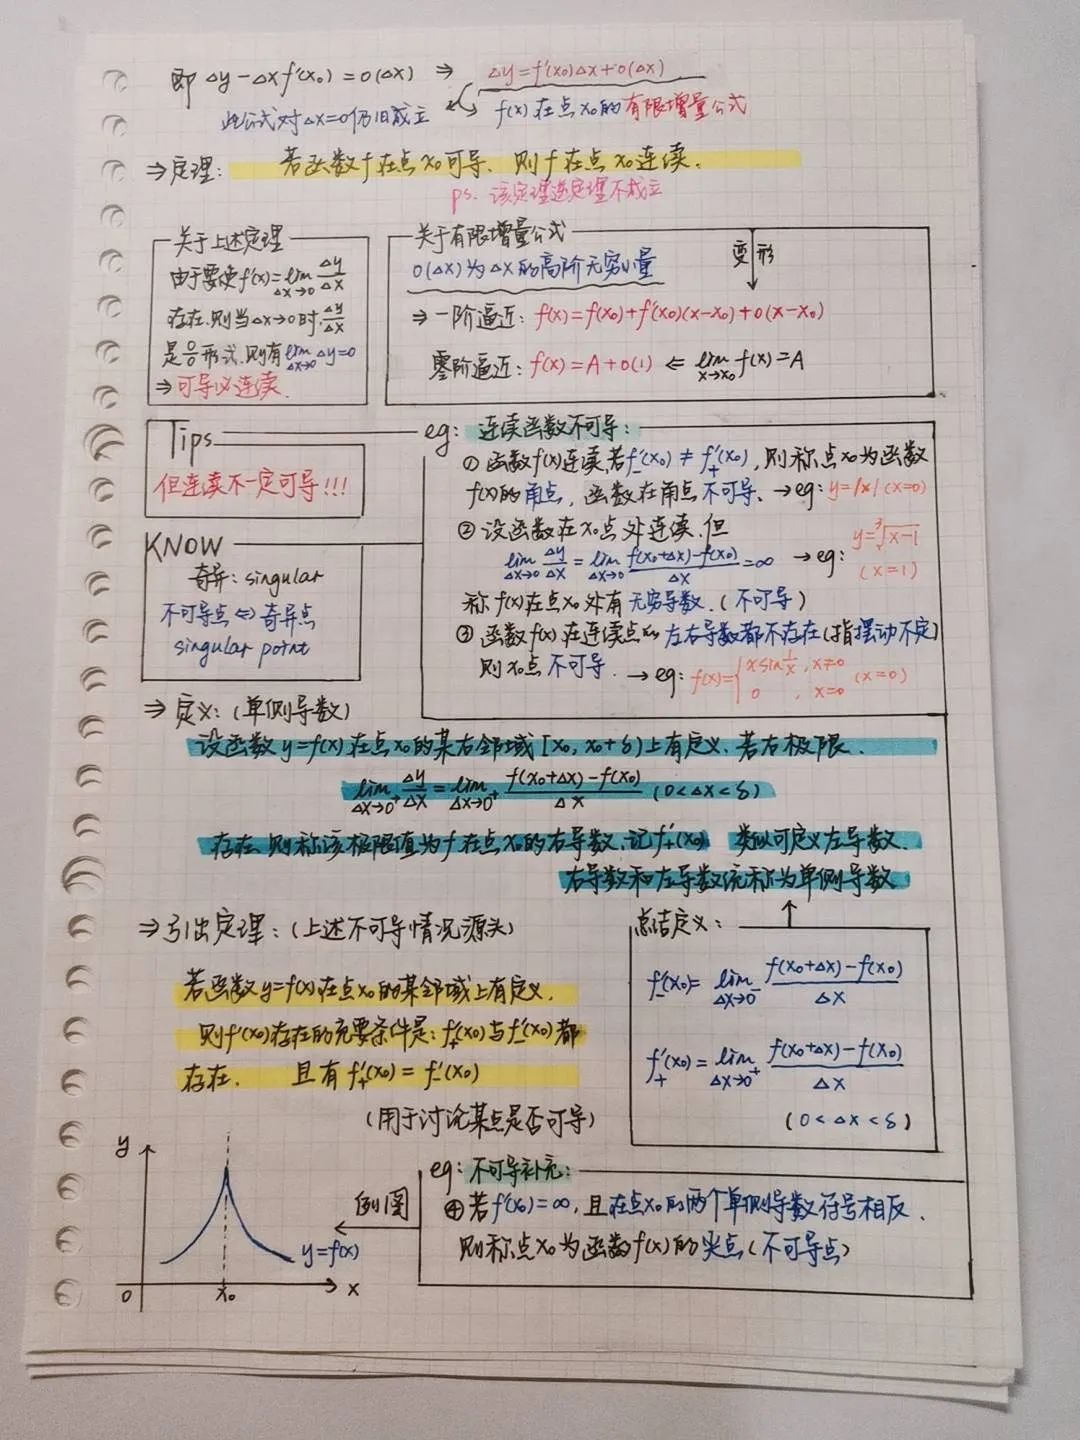 即 Δy-Δxf'(x₀)=o(Δx) ⇒ Δy=f'(x₀)Δx+o(Δx)
此公式对Δx=0仍旧成立 f(x)在点x₀的有限增量公式
⇒定理: 若函数f在点x₀可导、则f在点x₀连续.
ps. 该定理逆定理不成立
关于上述定理
由于要使f'(x)=lim Δx→0 Δy/Δx
存在.则当Δx→0时,Δy/Δx
是0/0形式.则有lim Δx→0 Δy=0
⇒可导必连续.
关于有限增量公式
o(Δx)为Δx的高阶无穷小量
变形
⇒一阶逼近: f(x)=f(x₀)+f'(x₀)(x-x₀)+o(x-x₀)
零阶逼近: f(x)=A+o(1) ⇐ lim x→x₀ f(x)=A
Tips
但连续不一定可导!!!
KNOW
奇异: singular
不可导点⇔奇异点
singular point
eg: 连续函数不可导:
① 函数f(x)连续,若f'₋(x₀)≠f'₊(x₀), 则称点x₀为函数
f(x)的角点, 函数在角点不可导、→eg: y=|x| (x=0)
② 设函数在x₀点处连续.但
lim Δx→0 Δy/Δx = lim Δx→0 (f(x₀+Δx)-f(x₀))/Δx=∞ →eg: y=³√x-1 (x=1)
称f(x)在点x₀处有无穷导数.(不可导)
③ 函数f(x)在连续点x₀左右导数都不存在(指摆动不定)
则x₀点不可导. →eg: f(x)={xsin1/x, x≠0 (x=0)
0 , x=0
⇒ 定义:(单侧导数)
设函数y=f(x)在点x₀的某右邻域[x₀, x₀+δ)上有定义.若右极限.
lim Δx→0⁺ Δy/Δx = lim Δx→0⁺ (f(x₀+Δx)-f(x₀))/Δx (0<Δx<δ)
存在.则称该极限值为f在点x₀的右导数.记f'₊(x₀) 类似可定义左导数.
右导数和左导数统称为单侧导数
⇒引出定理:(上述不可导情况源头)
若函数y=f(x)在点x₀的某邻域上有定义.
则f'(x₀)存在的充要条件是: f'₊(x₀)与f'₋(x₀)都
存在. 且有f'₊(x₀)=f'₋(x₀)
(用于讨论某点是否可导)
总结定义:
f'₋(x₀)=lim Δx→0⁻ (f(x₀+Δx)-f(x₀))/Δx
f'₊(x₀)=lim Δx→0⁺ (f(x₀+Δx)-f(x₀))/Δx
(0<Δx<δ)
eg: 不可导补充:
④若f'(x₀)=∞, 且在点x₀的两个单侧导数符号相反.
则称点x₀为函数f(x)的尖点(不可导点)
例图
y
y=f(x)
0 x₀ x